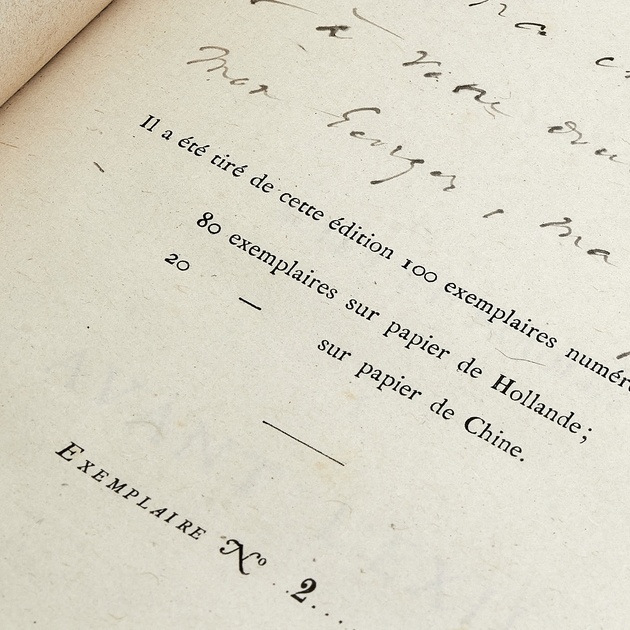 à votre
mon Georges, ma
Il a été tiré de cette édition 100 exemplaires numéro
80 exemplaires sur papier de Hollande;
20 — sur papier de Chine.
EXEMPLAIRE No 2...